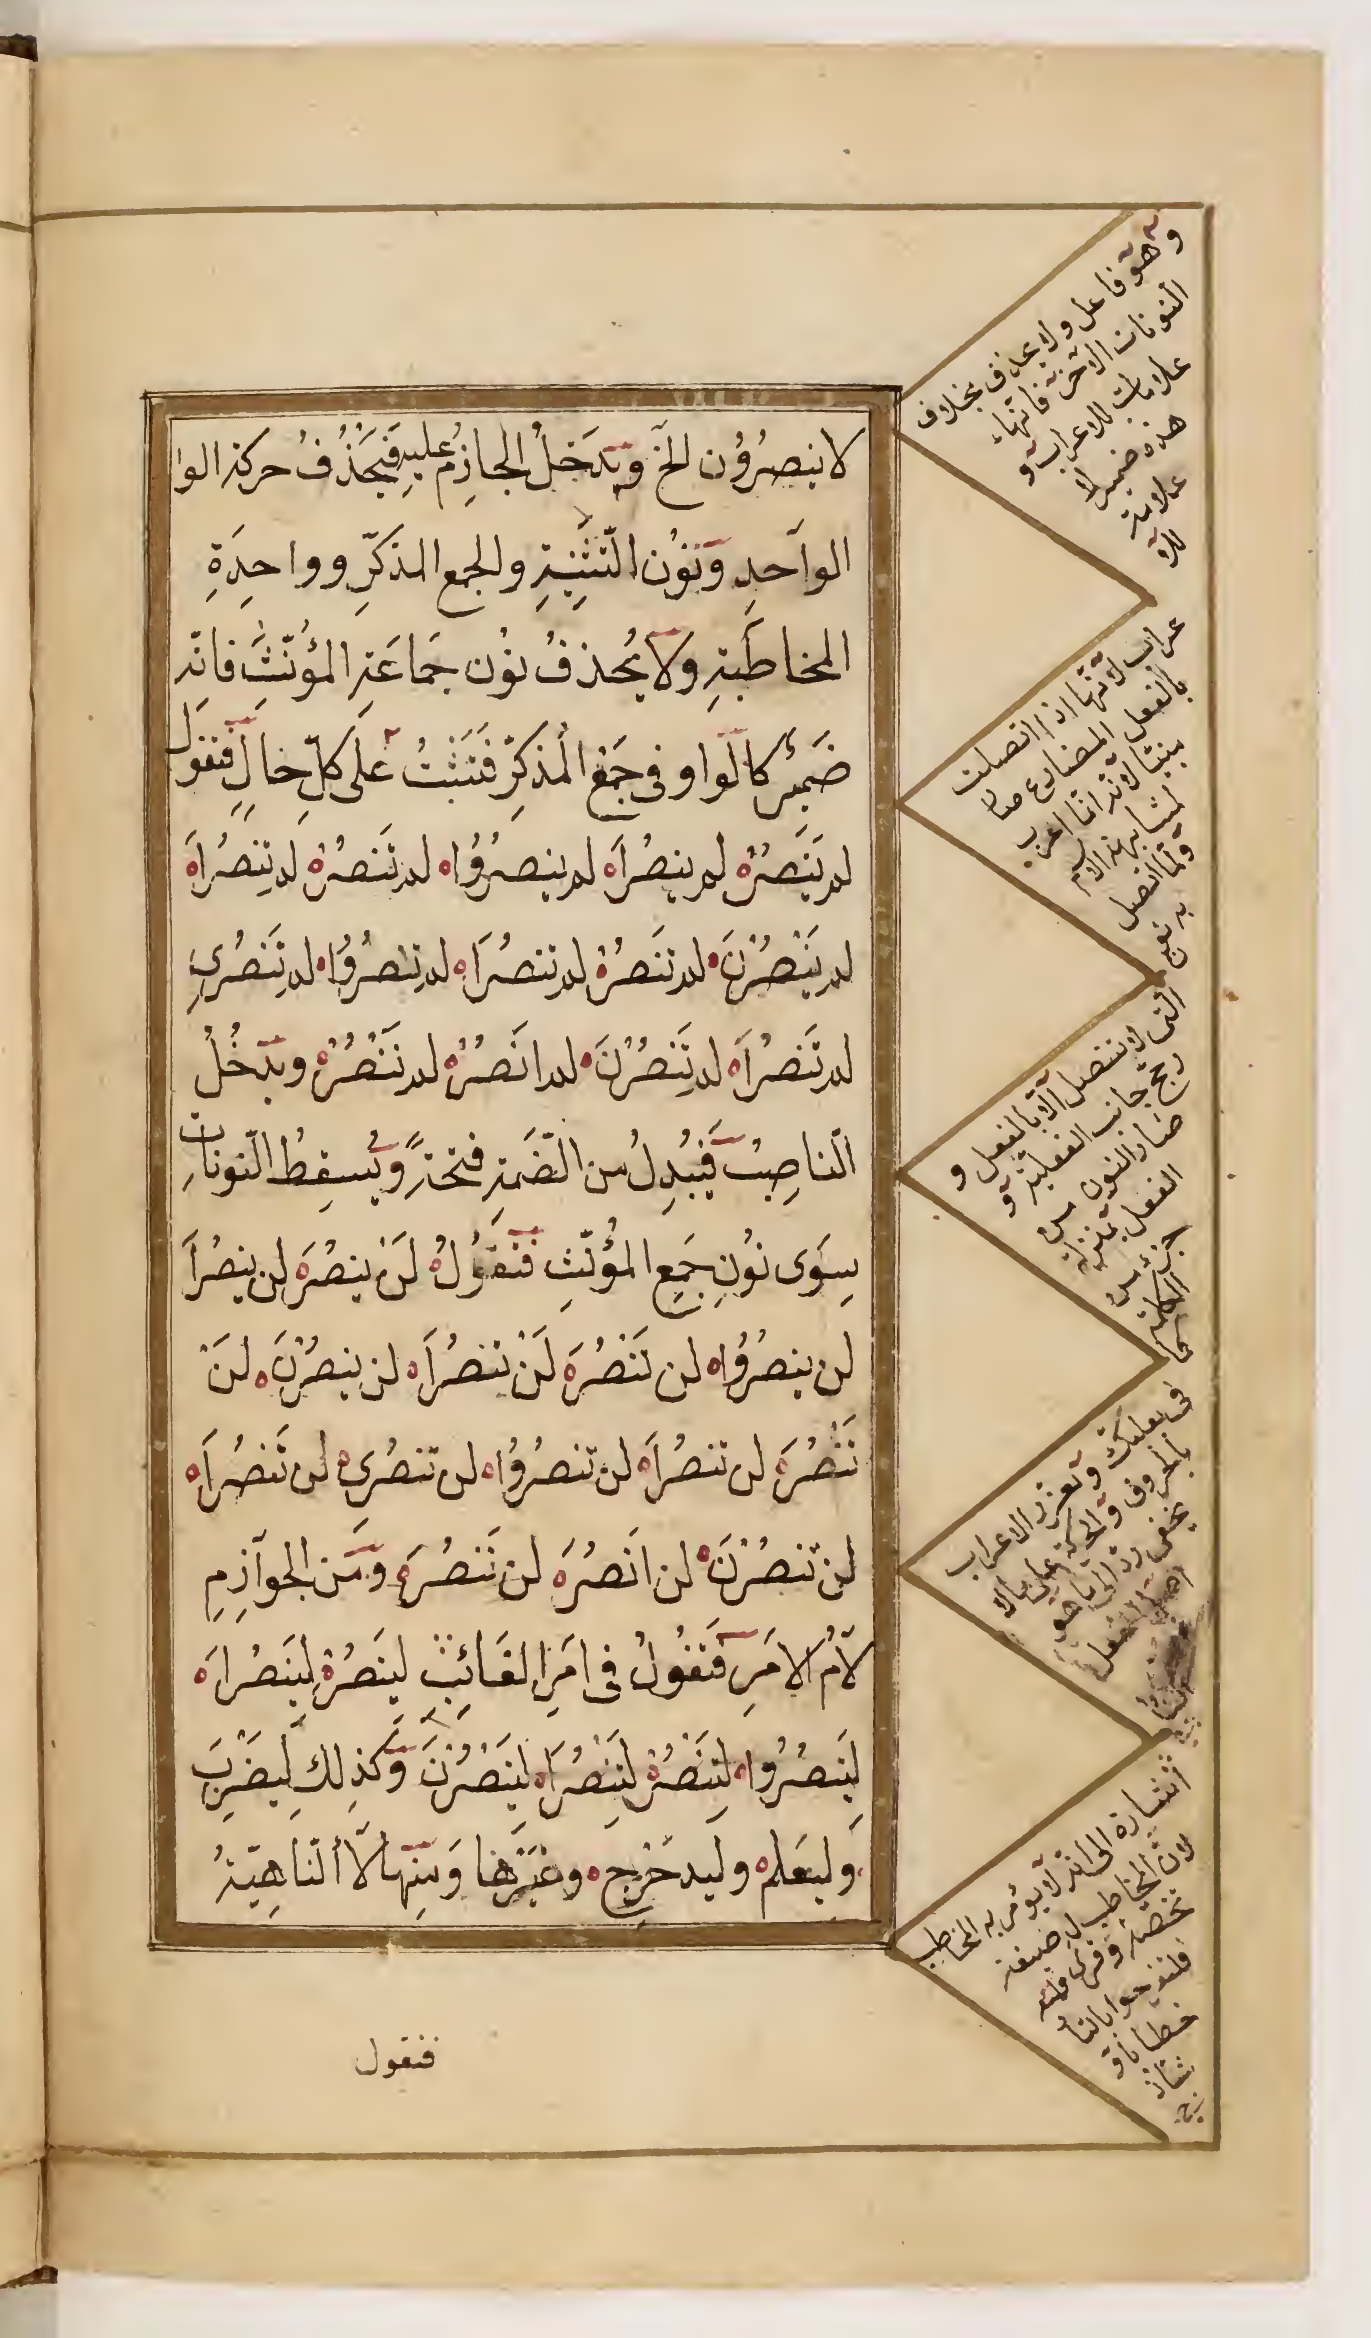 لا ينصرون الخ ويدخل الجازم عليه فيحذف حركة الوا
الواحد ونون التثنية والجمع المذكر وواحدة
المخاطبة ولا يحذف نون جماعة المؤنث فانه
ضمير كالواو في جمع المذكر فتثبت على كل حال فتقول
لم ينصر لم ينصرا لم ينصروا لم تنصر لم تنصرا
لم ينصرن لم تنصر لم تنصرا لم تنصروا لم تنصري
لم تنصرا لم تنصرن لم انصر لم ننصر ويدخل
الناصب فيبدل من الضمة فتحة ويسقط النونات
سوى نون جمع المؤنث فتقول لن ينصر لن ينصرا
لن ينصروا لن تنصر لن تنصرا لن ينصرن لن
تنصر لن تنصرا لن تنصروا لن تنصري لن تنصرا
لن تنصرن لن انصر لن ننصر ومن الجوازم
لام الامر فتقول في امر الغائب لينصر لينصرا
لينصروا لتنصر لتنصرا لينصرن وكذلك ليضرب
وليعلم وليدحرج وغيرها ومنها لا الناهية
فتقول
وهو فاعل ولا يحذف بخلاف
النونات الاخر فانها
علامات للاعراب و
هذه ضمير لا
علامة
للا
عراب لانها اذا اتصلت
بالفعل المضارع صار
مبنيا لانه انما اعرب
لمشابهة الاسم
ولما اتصل
به نون
التي لا تتصل الا بالفعل و
رجح جانب الفعلية و
صار النون من
الفعل بمنزلة
جزء من
الكلمة
كما
في بعلبك وتعذر الاعراب
بالحروف والحركة على ما لا
يخفى رد الى ما هو
اصل الفعل
البناء
اشارة الى انه لا يؤمر به المخاطب
لان المخاطب له صيغة
تختصه وقرئ فلتفرحوا
بالتاء
خطابا و
شاذ